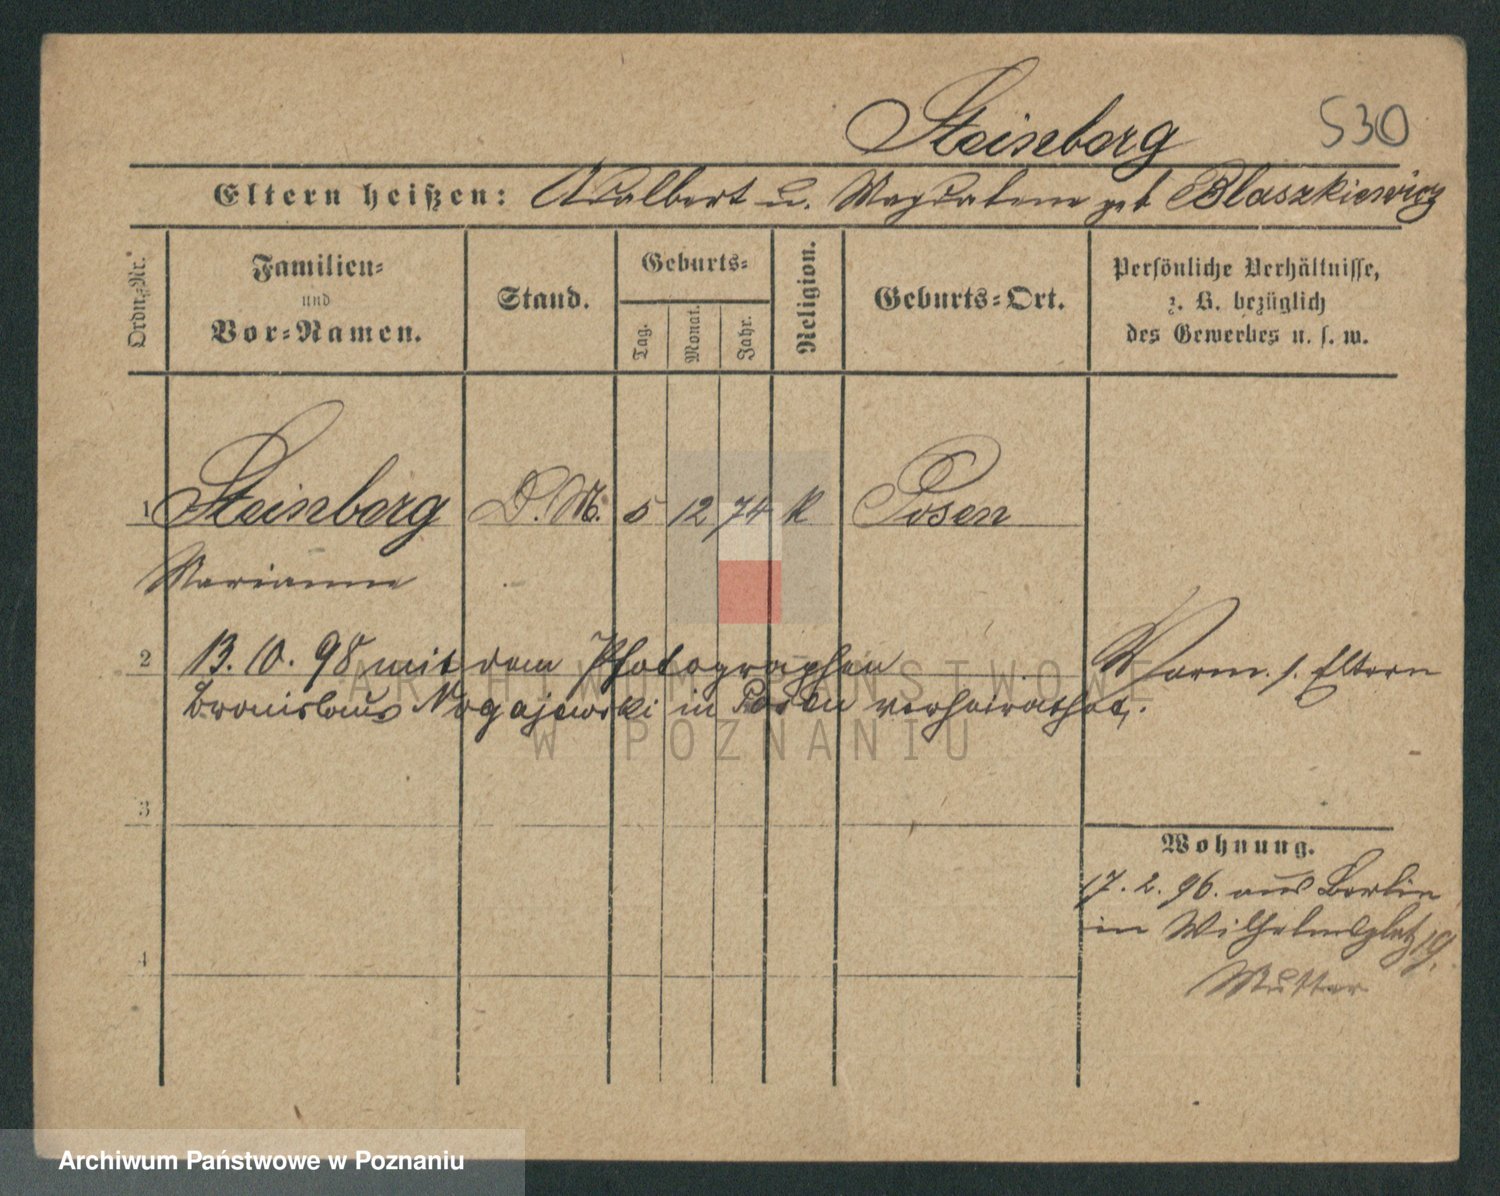 Steinberg 530
Eltern heißen: Adalbert u. Magdalene geb Blaszkiewicz
Ordn.-Nr.
Familien-
und
Vor-Namen.
Stand.
Geburts-
Tag.
Monat.
Jahr.
Religion.
Geburts-Ort.
Persönliche Verhältnisse,
z. B. bezüglich
des Gewerbes u. s. w.
1 Steinberg D. M. 5 12 74 K Posen
Marianne
2 13. 10. 98 mit dem Photographen
Bronislaus Nogajewski in Posen verheirathet.
Verm. s. Eltern
3
Wohnung.
17. 2. 96. aus Berlin
in Wilhelmsplatz 19.
Mutter
4
ARCHIWUM PAŃSTWOWE
W POZNANIU
Archiwum Państwowe w Poznaniu